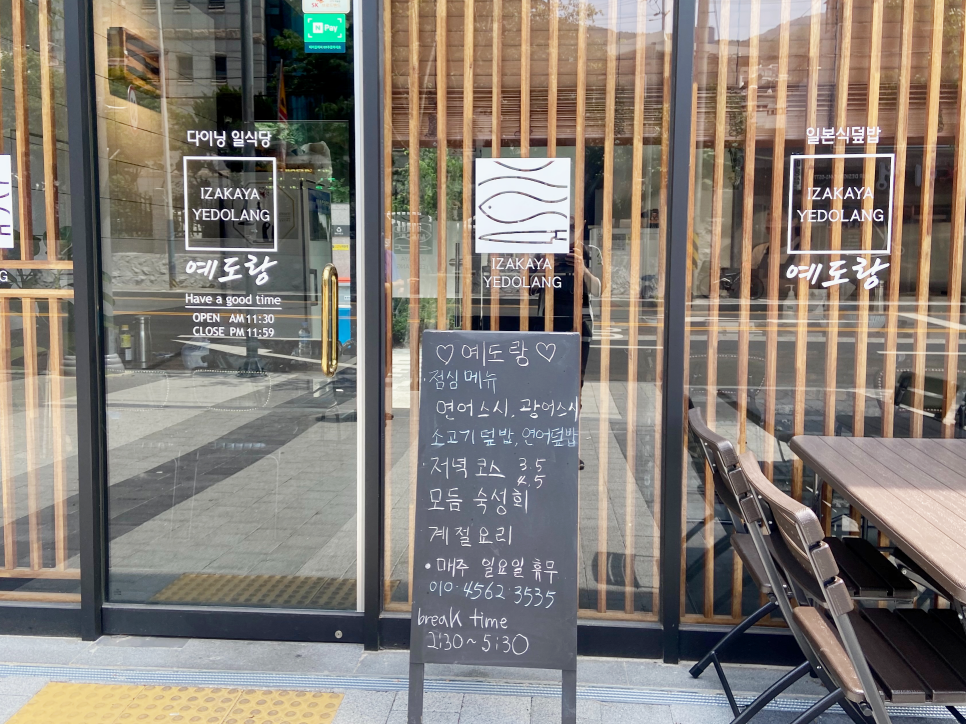 Pay
다이닝 일식당
IZAKAYA
YEDOLANG
예도랑
Have a good time
OPEN AM 11:30
CLOSE PM 11:59
IZAKAYA
YEDOLANG
일본식덮밥
IZAKAYA
YEDOLANG
예도랑
♡예도랑♡
·점심메뉴
연어스시, 광어스시
소고기덮밥, 연어덮밥
·저녁코스 3.5
4.5
모듬 숙성회
계절요리
• 매주 일요일 휴무
010-4562-3535
break time
2:30~5:30